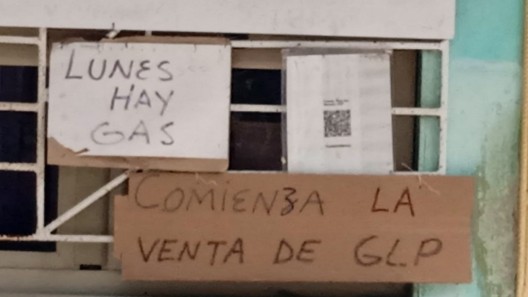 LUNES
HAY
GAS
COMIENZA LA
VENTA DE GLP